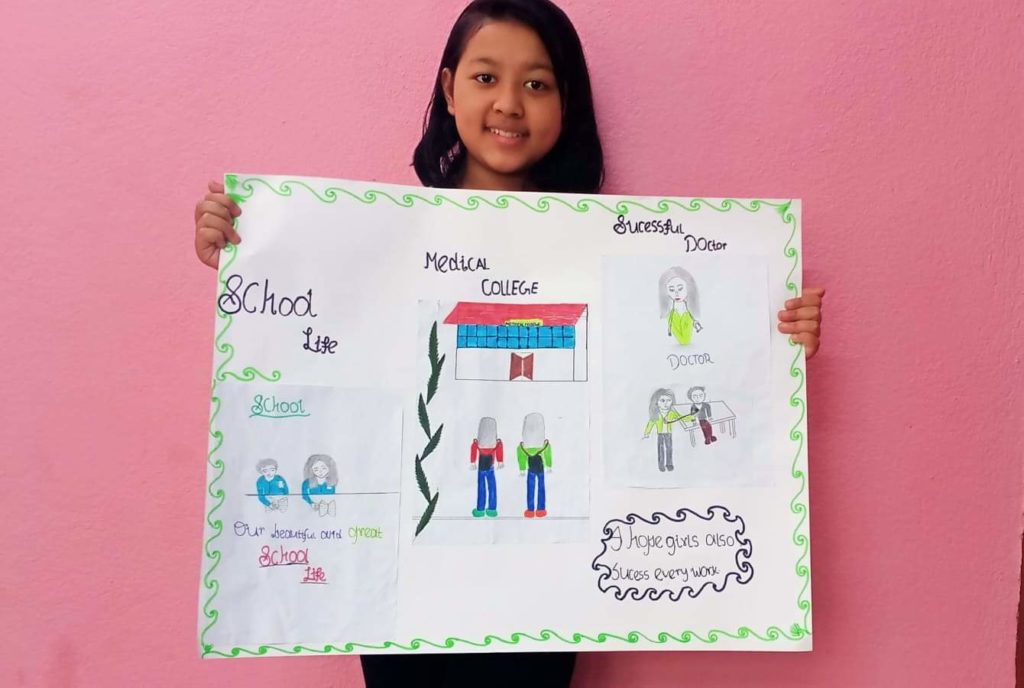 School
Life
School
Our beautiful and great
School
Life
Medical
COLLEGE
Sucessful
Doctor
DOCTOR
I hope girls also
sucess every work